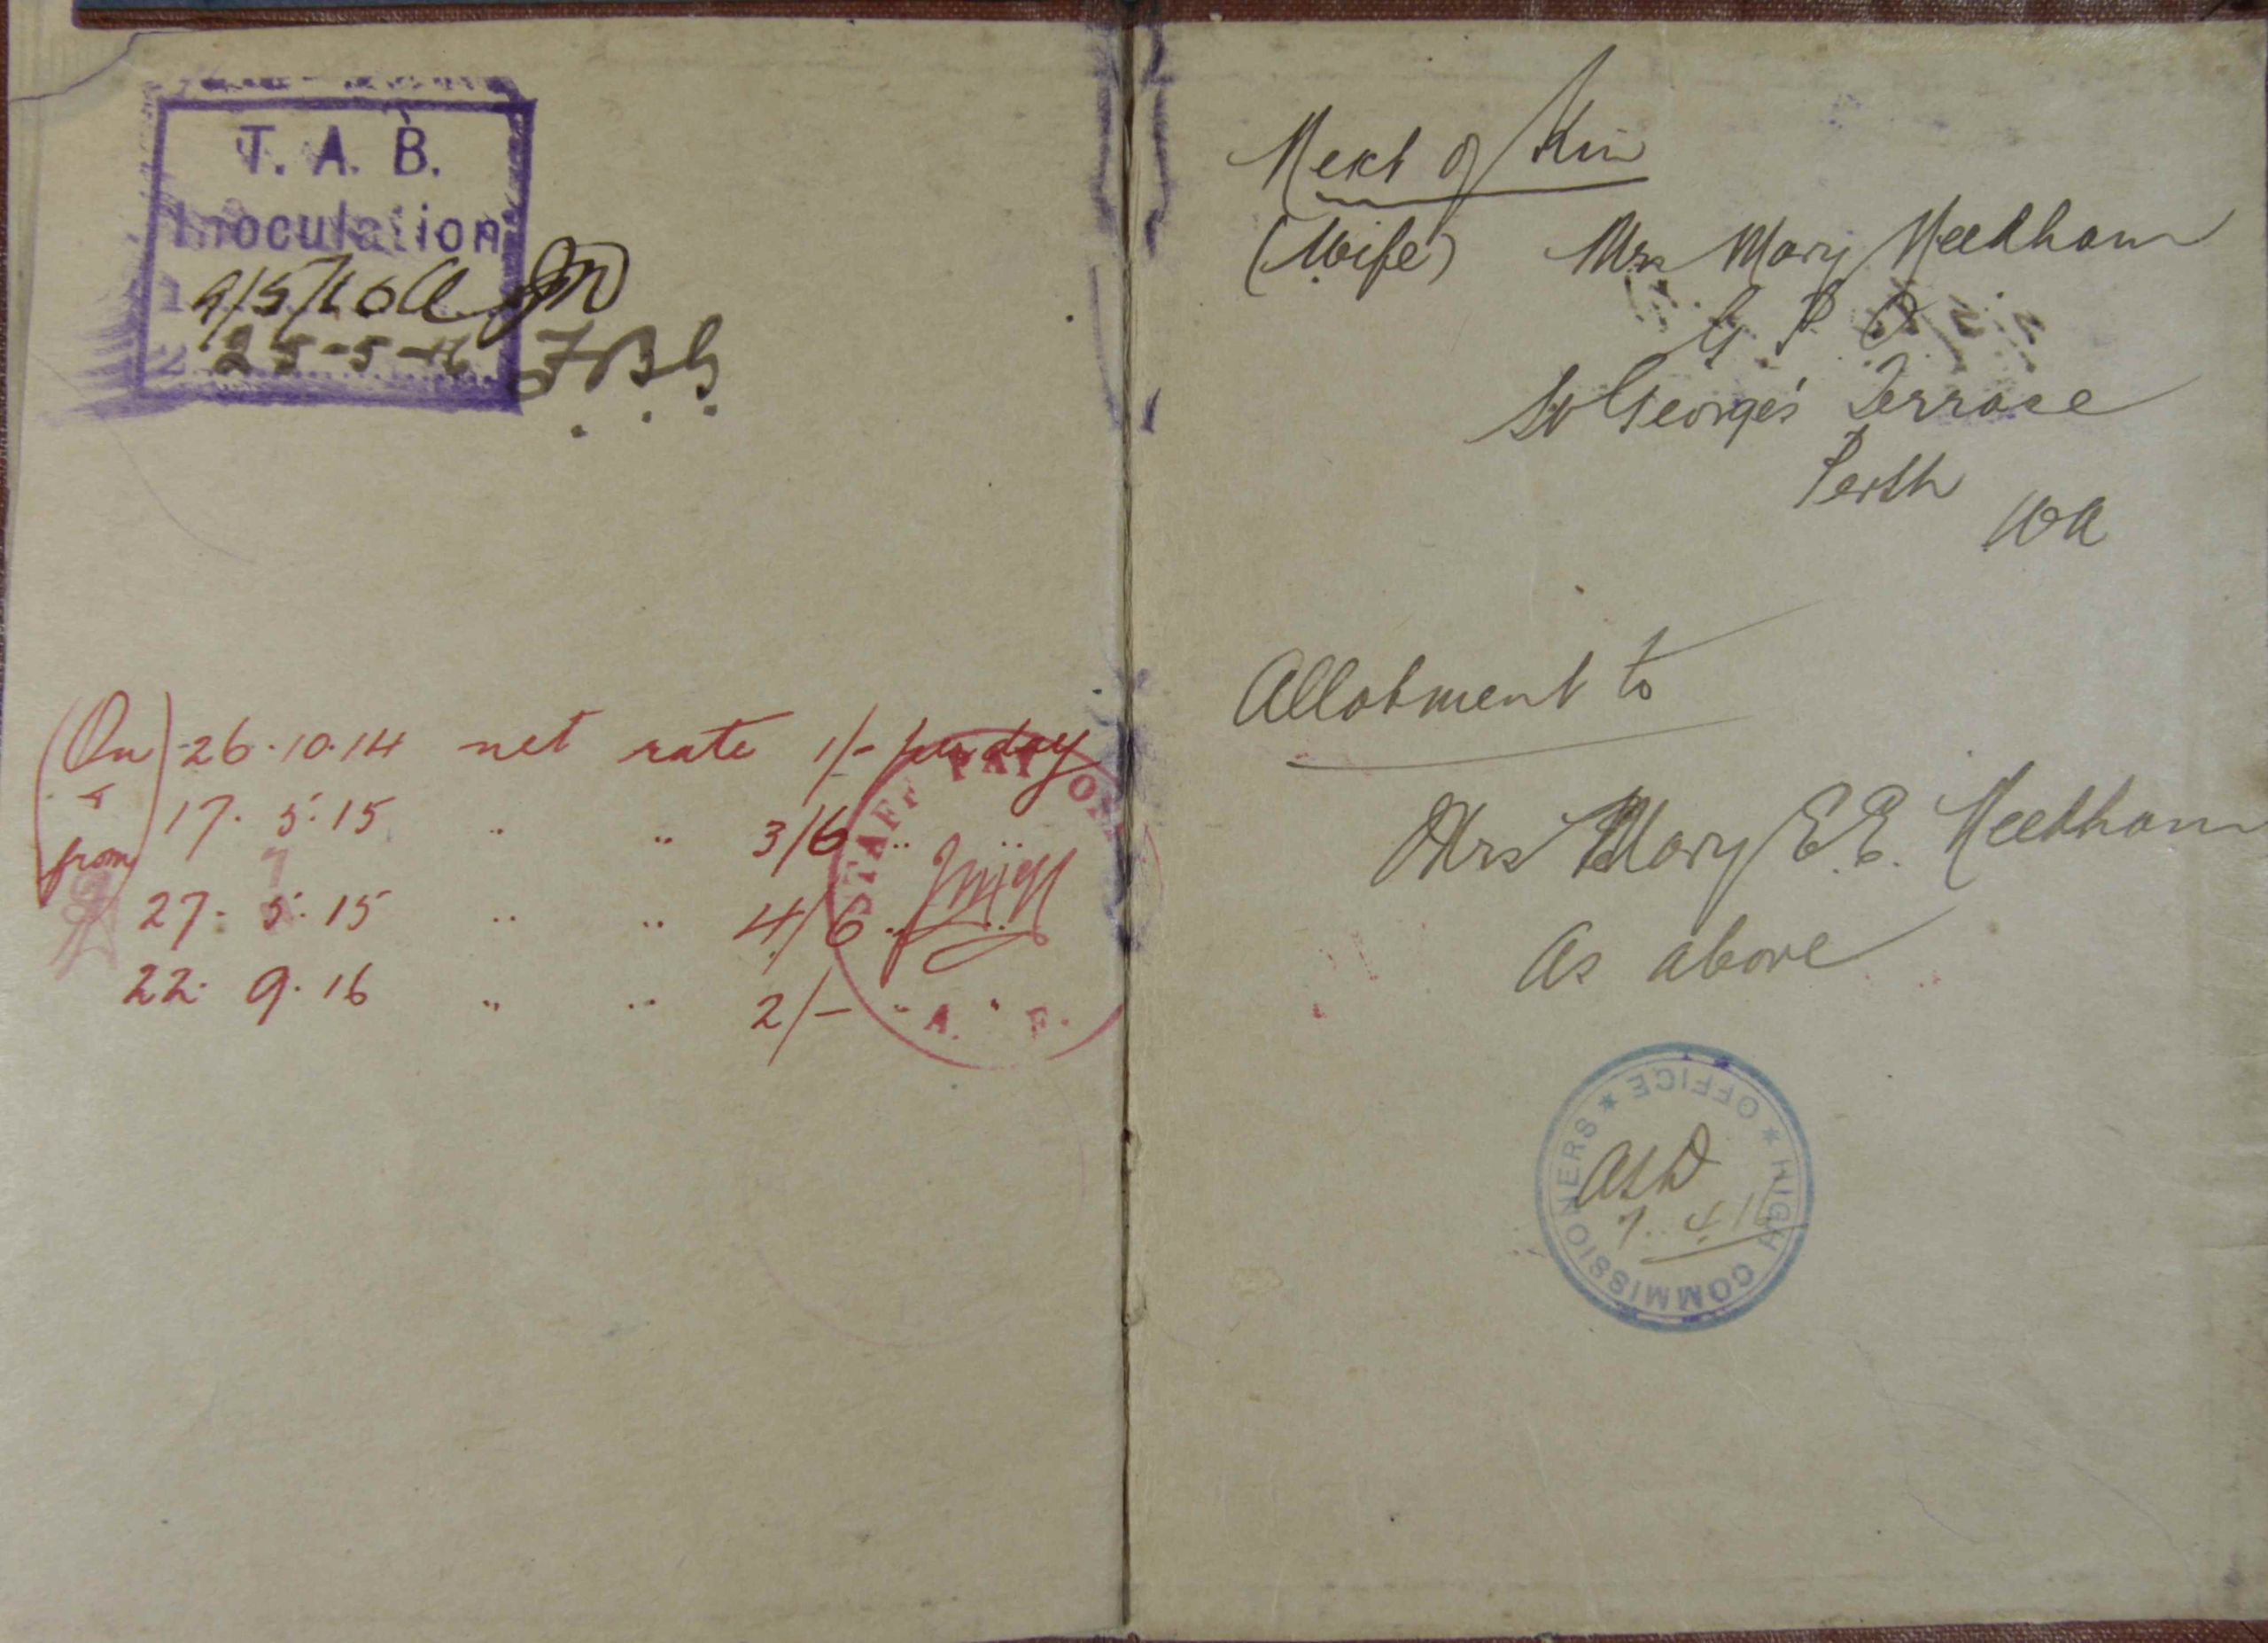 T. A. B.
Inoculation
9/5/16
25-5-16 FBG
(On) 26.10.14 net rate 1/- per day
& 17. 5. 15 " " 3/6 "
from
27. 5. 15 " " 4/6 "
22. 9. 16 " " 2/- " "
STAFF PAY
A. F.
Next of Kin
(Wife) Mrs Mary Needham
G P O
St George's Terrace
Perth
WA
Allotment to
Mrs Mary E.E. Needham
As above
HIGH COMMISSIONERS * OFFICE *